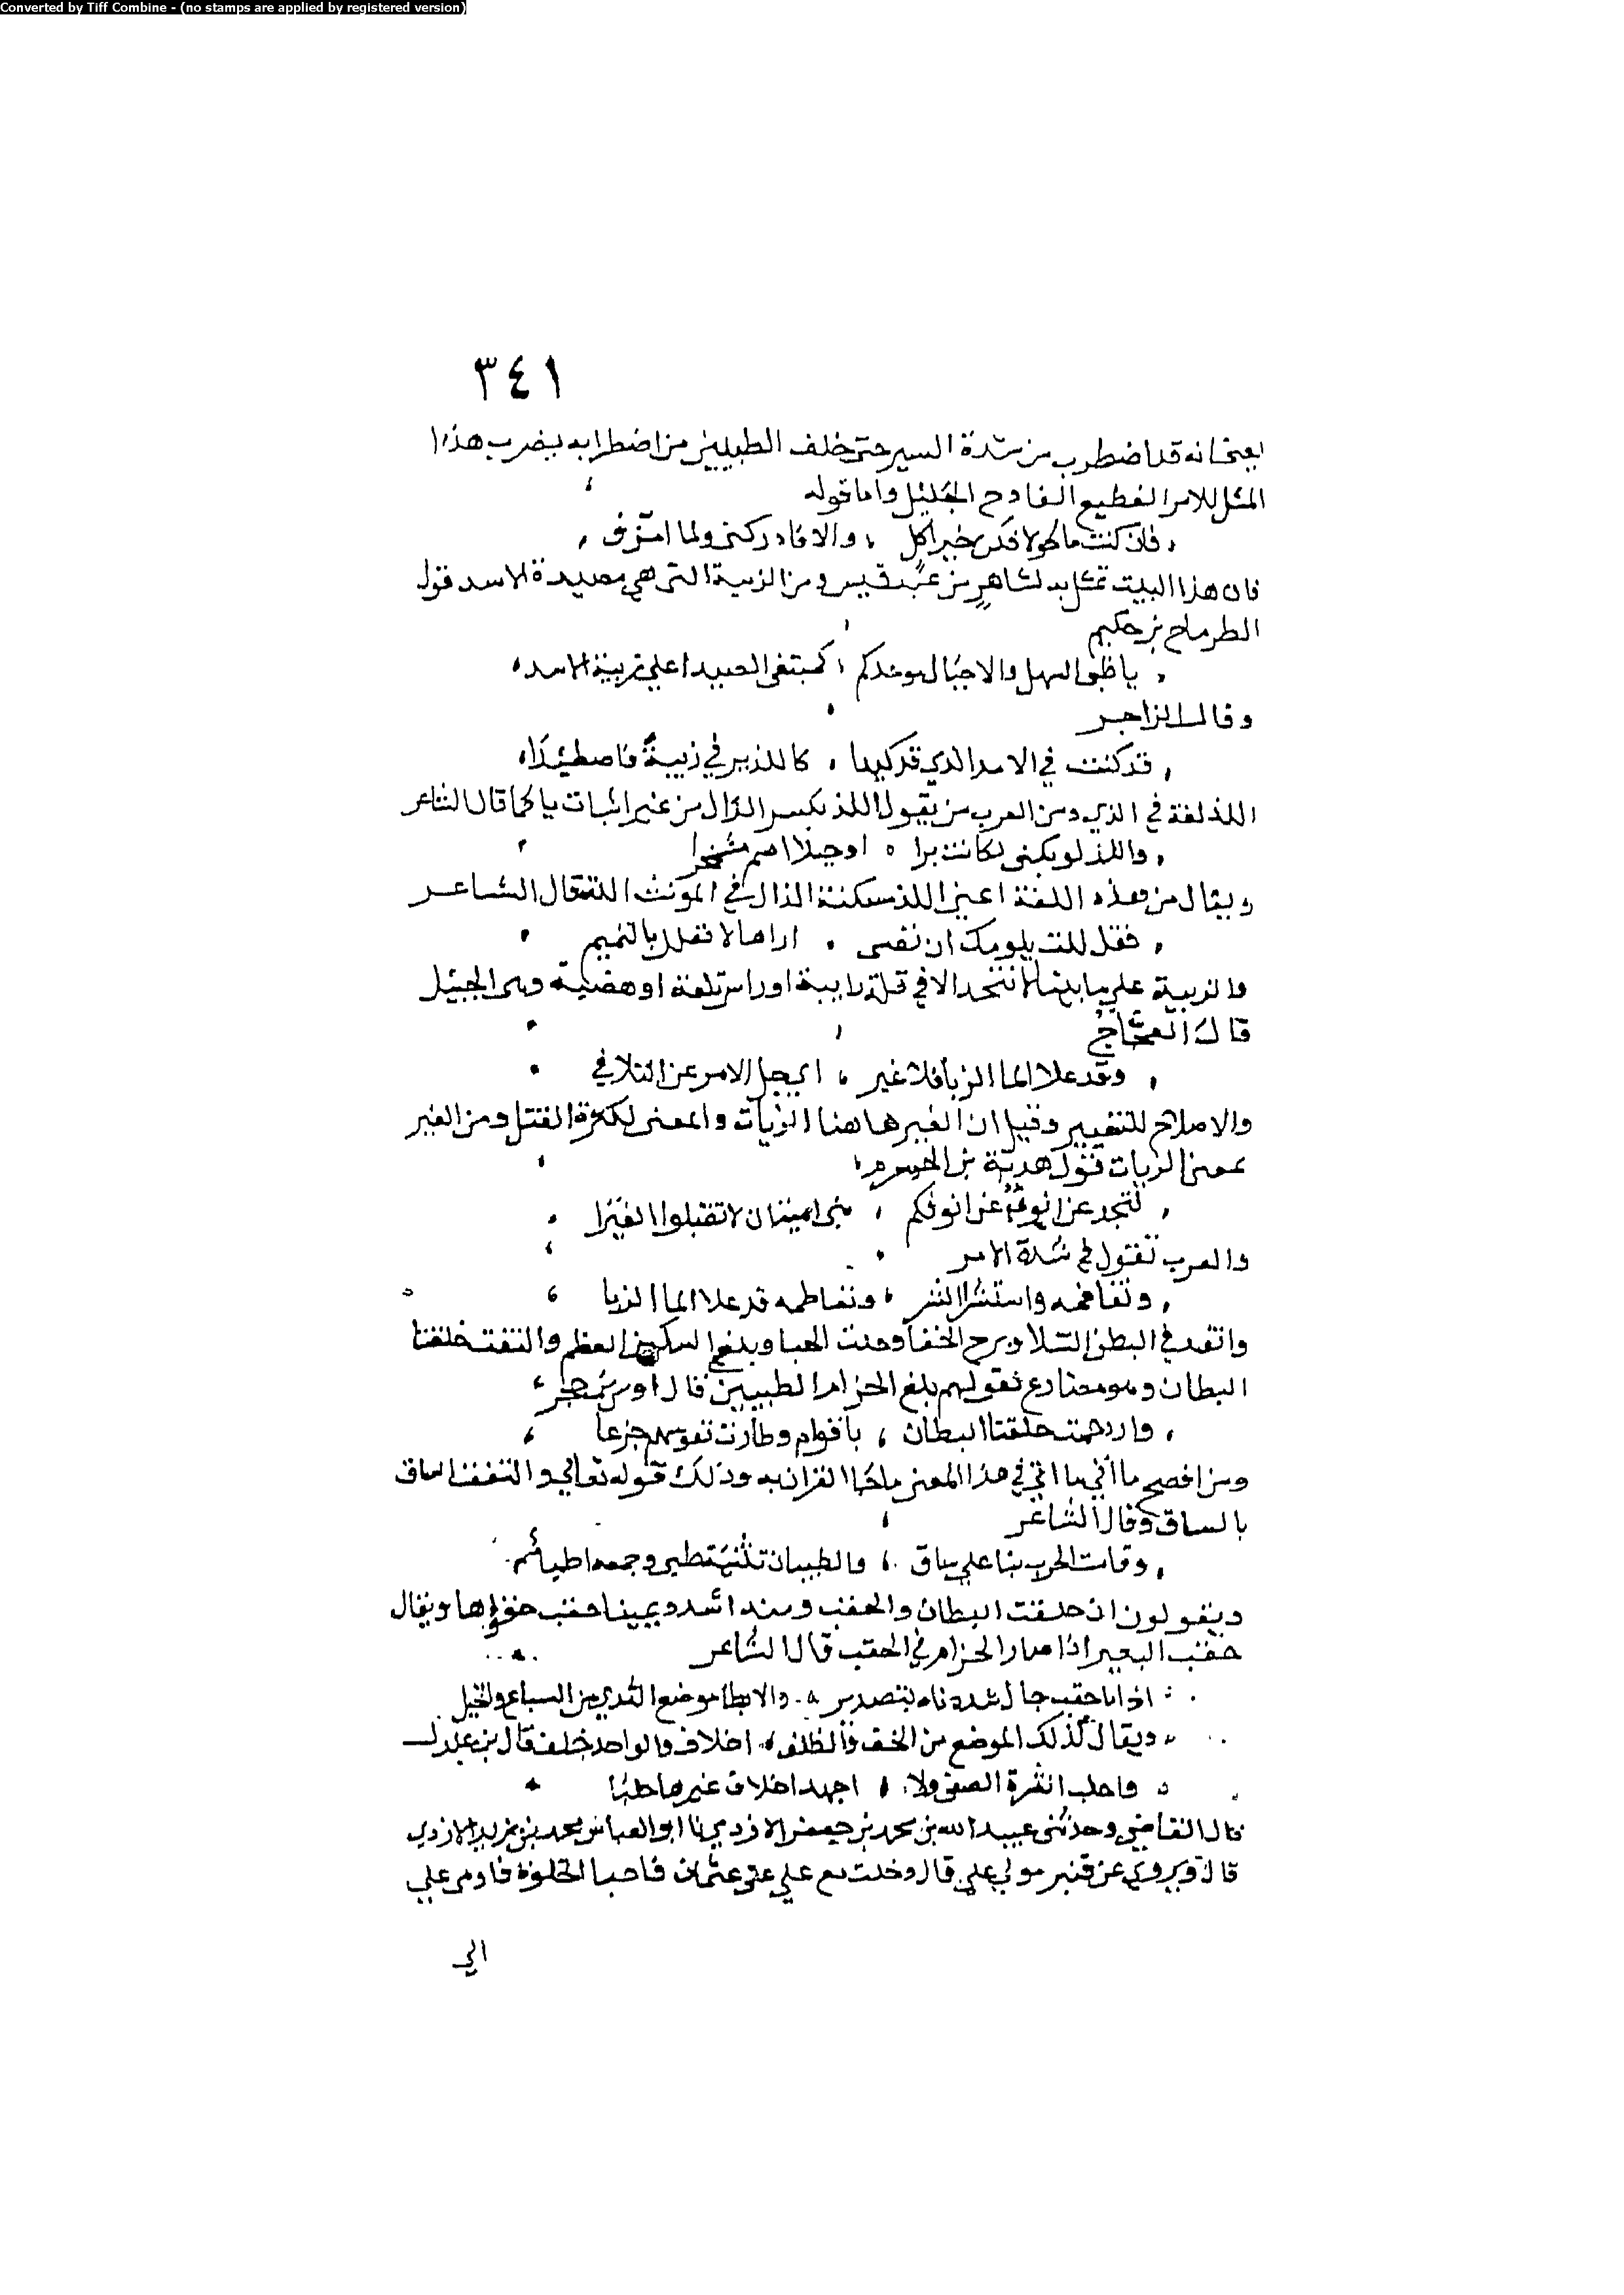 Converted by Tiff Combine - (no stamps are applied by registered version)
٣٤١
يعني انه قد اضطرب من شدة السير حتى خلف الطبيين من اضطرابه يضرب هذا
المثل للامر الفظيع الفادح الجليل واما قوله
فان كنت ماكولا فكن خير اكل ، والا فادركني ولما امزق
فان هذا البيت تمثل به لشاعر من عبد قيس ومن الزبية التي هي مصيدة الاسد قول
الطرماح بن حكيم
يا طيئ السهل والاجبال موعدكم ، كمبتغى الصيد اعلي زبية الاسد
وقال الراجز
قد كنت في الامر الذي قد كيدا ، كاللذ تزبى زبية فاصطيدا
اللذ لغة في الذي ومن العرب من يقول اللذ بكسر الذال من غير اثبات يا كما قال الشاعر
واللذ لو يكنى لكانت برا ، او جبلا اصم مشمخرا
ويقال من هذه اللغة اعني اللذ مسكنة الذال في المونث اللت قال الشاعر
فقل للت يلومك ان نفسي ، اراها لا تعلل بالتميم
والزبية علي ما بينا لا تتخذ الا في قلة رابية او راس تلعة او هضبة وهي الجبيل
قال العجاج
وقد علا الما الزبا فلا غير ، اي جل الامر عن التلافي
والاصلاح للتغيير وقيل ان الغير هاهنا الديات والمعنى لكثرة القتل ومن الغير
بمعنى الديات قول هدبة بن الخشرم
لنجدعن انوفكم ، بني اميمة ان لا تقبلوا الغيرا
والعرب تقول في شدة الامر
وتفاقمه واستشرا الشر ، وتعاظمه قد علا الما الزبا
وانقد في البطن السلا وبرح الخفا وبلغ السكين العظم والتقت حلقتا
البطان وهو مضارع لقولهم بلغ الحزام الطبيين قال اوس بن حجر
وازدحمت حلقتا البطان ، باقوام وطارت نفوسهم جزعا
ومن افصح ما اتي في هذا المعنى ما جا القران به وذلك قوله تعالي والتفت الساق
بالساق وقال الشاعر
وقامت الحرب بنا علي ساق ، والطبيان تثنية طبي وجمعه اطبا
ويقولون حلقت البطان والحقب ويقال
حقب البعير اذا صار الحزام في الحقب قال الشاعر
اذا ما حقب جال شددناه بتصدير ، والاطبا موضع الثدي من السباع والخيل
ويقال لذلك الموضع من الخف والظلف اخلاف والواحد خلف قال
واحلب الثرة الصفي ولا ، اجهد اخلاف غيرها حلبا
قال القاضي وحدثني عبيد الله بن محمد بن جعفر الازدي نا ابو العباس محمد بن يزيد الازدي
قال ويروي عن قنبر مولي علي قال دخلت مع علي علي عثمان فاحبا الخلوة فاومى علي
الي